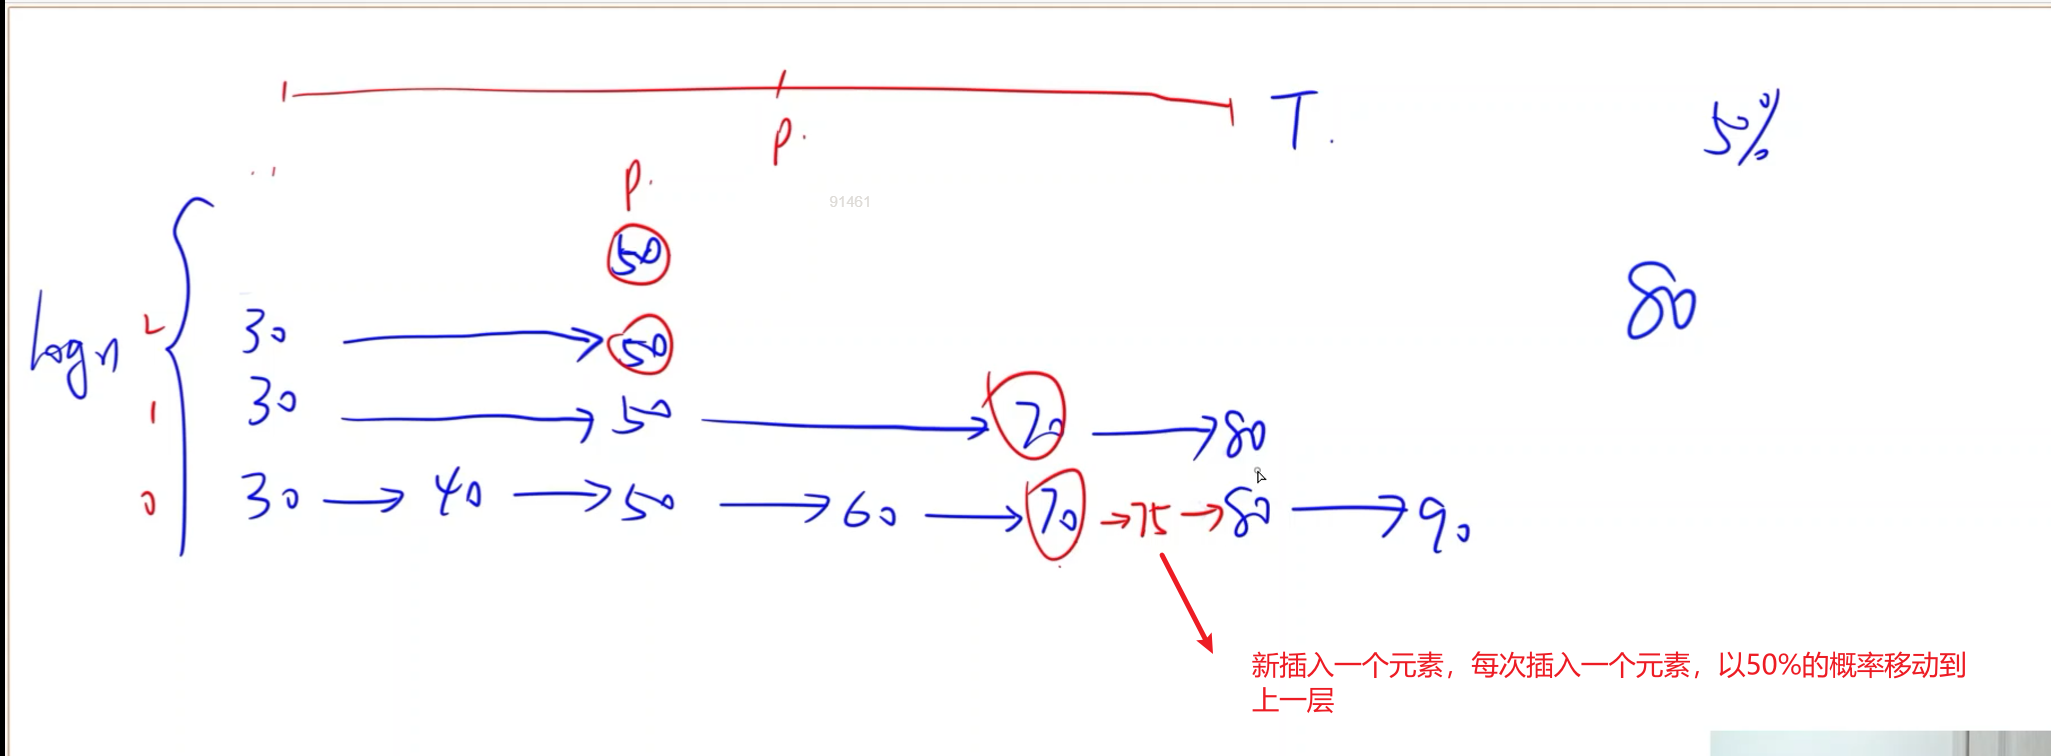 T.
50%
P.
P.
91461
50
80
logn
2 30 → 50
1 30 → 50 → 70 → 80
0 30 → 40 → 50 → 60 → 70 → 75 → 80 → 90
新插入一个元素，每次插入一个元素，以50%的概率移动到
上一层